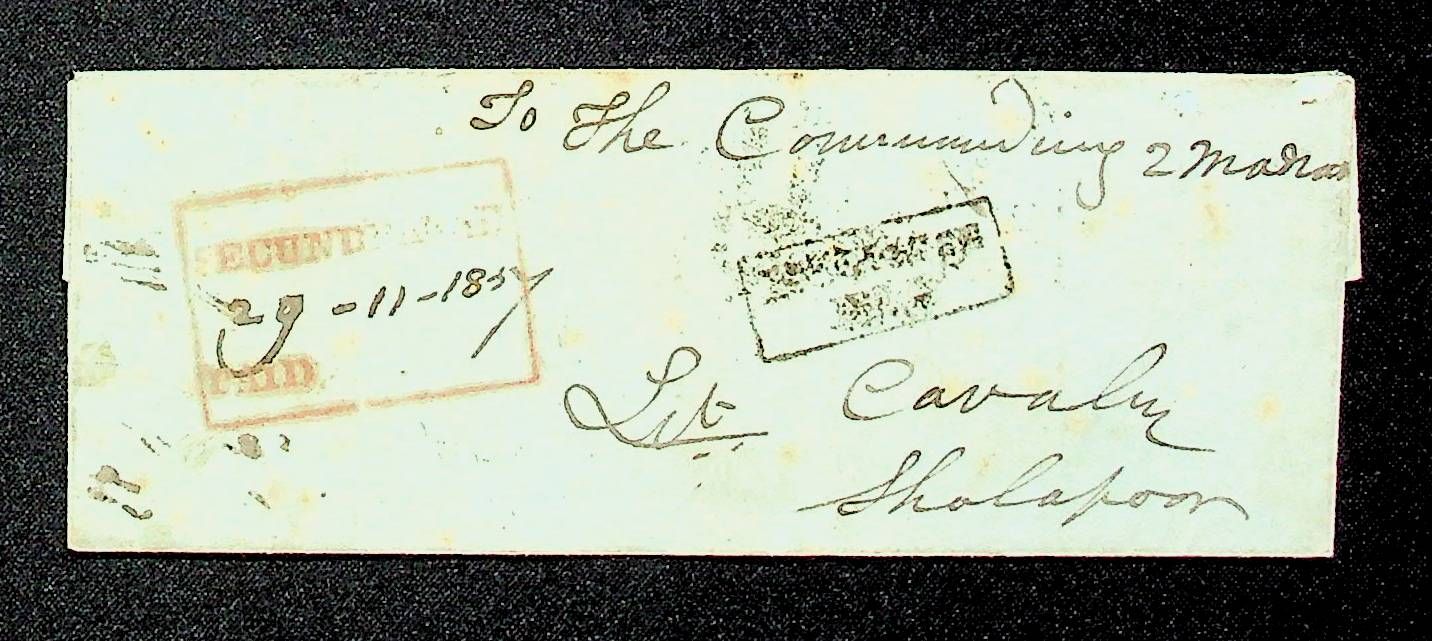 To The Commanding 2 Madras
SECUNDERABAD
29-11-1857
PAID
Lit Cavalry
Sholapoor